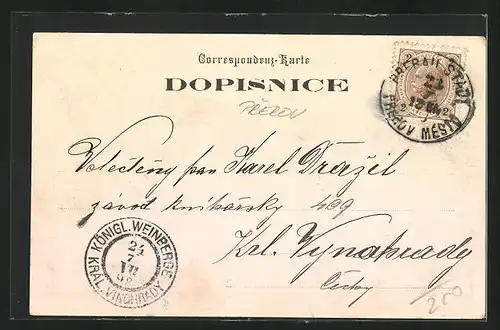 Correspondenz-Karte
DOPISNICE
PŘEROV
PRERAU STADT
PŘEROV MĚSTO
Velectěný pan Karel Dražil
závod knihařský 409
Krl. Vynohrady
Čechy
KÖNIGL. WEINBERGE
24
7
VII
98
KRÁL. VINOHRADY
250